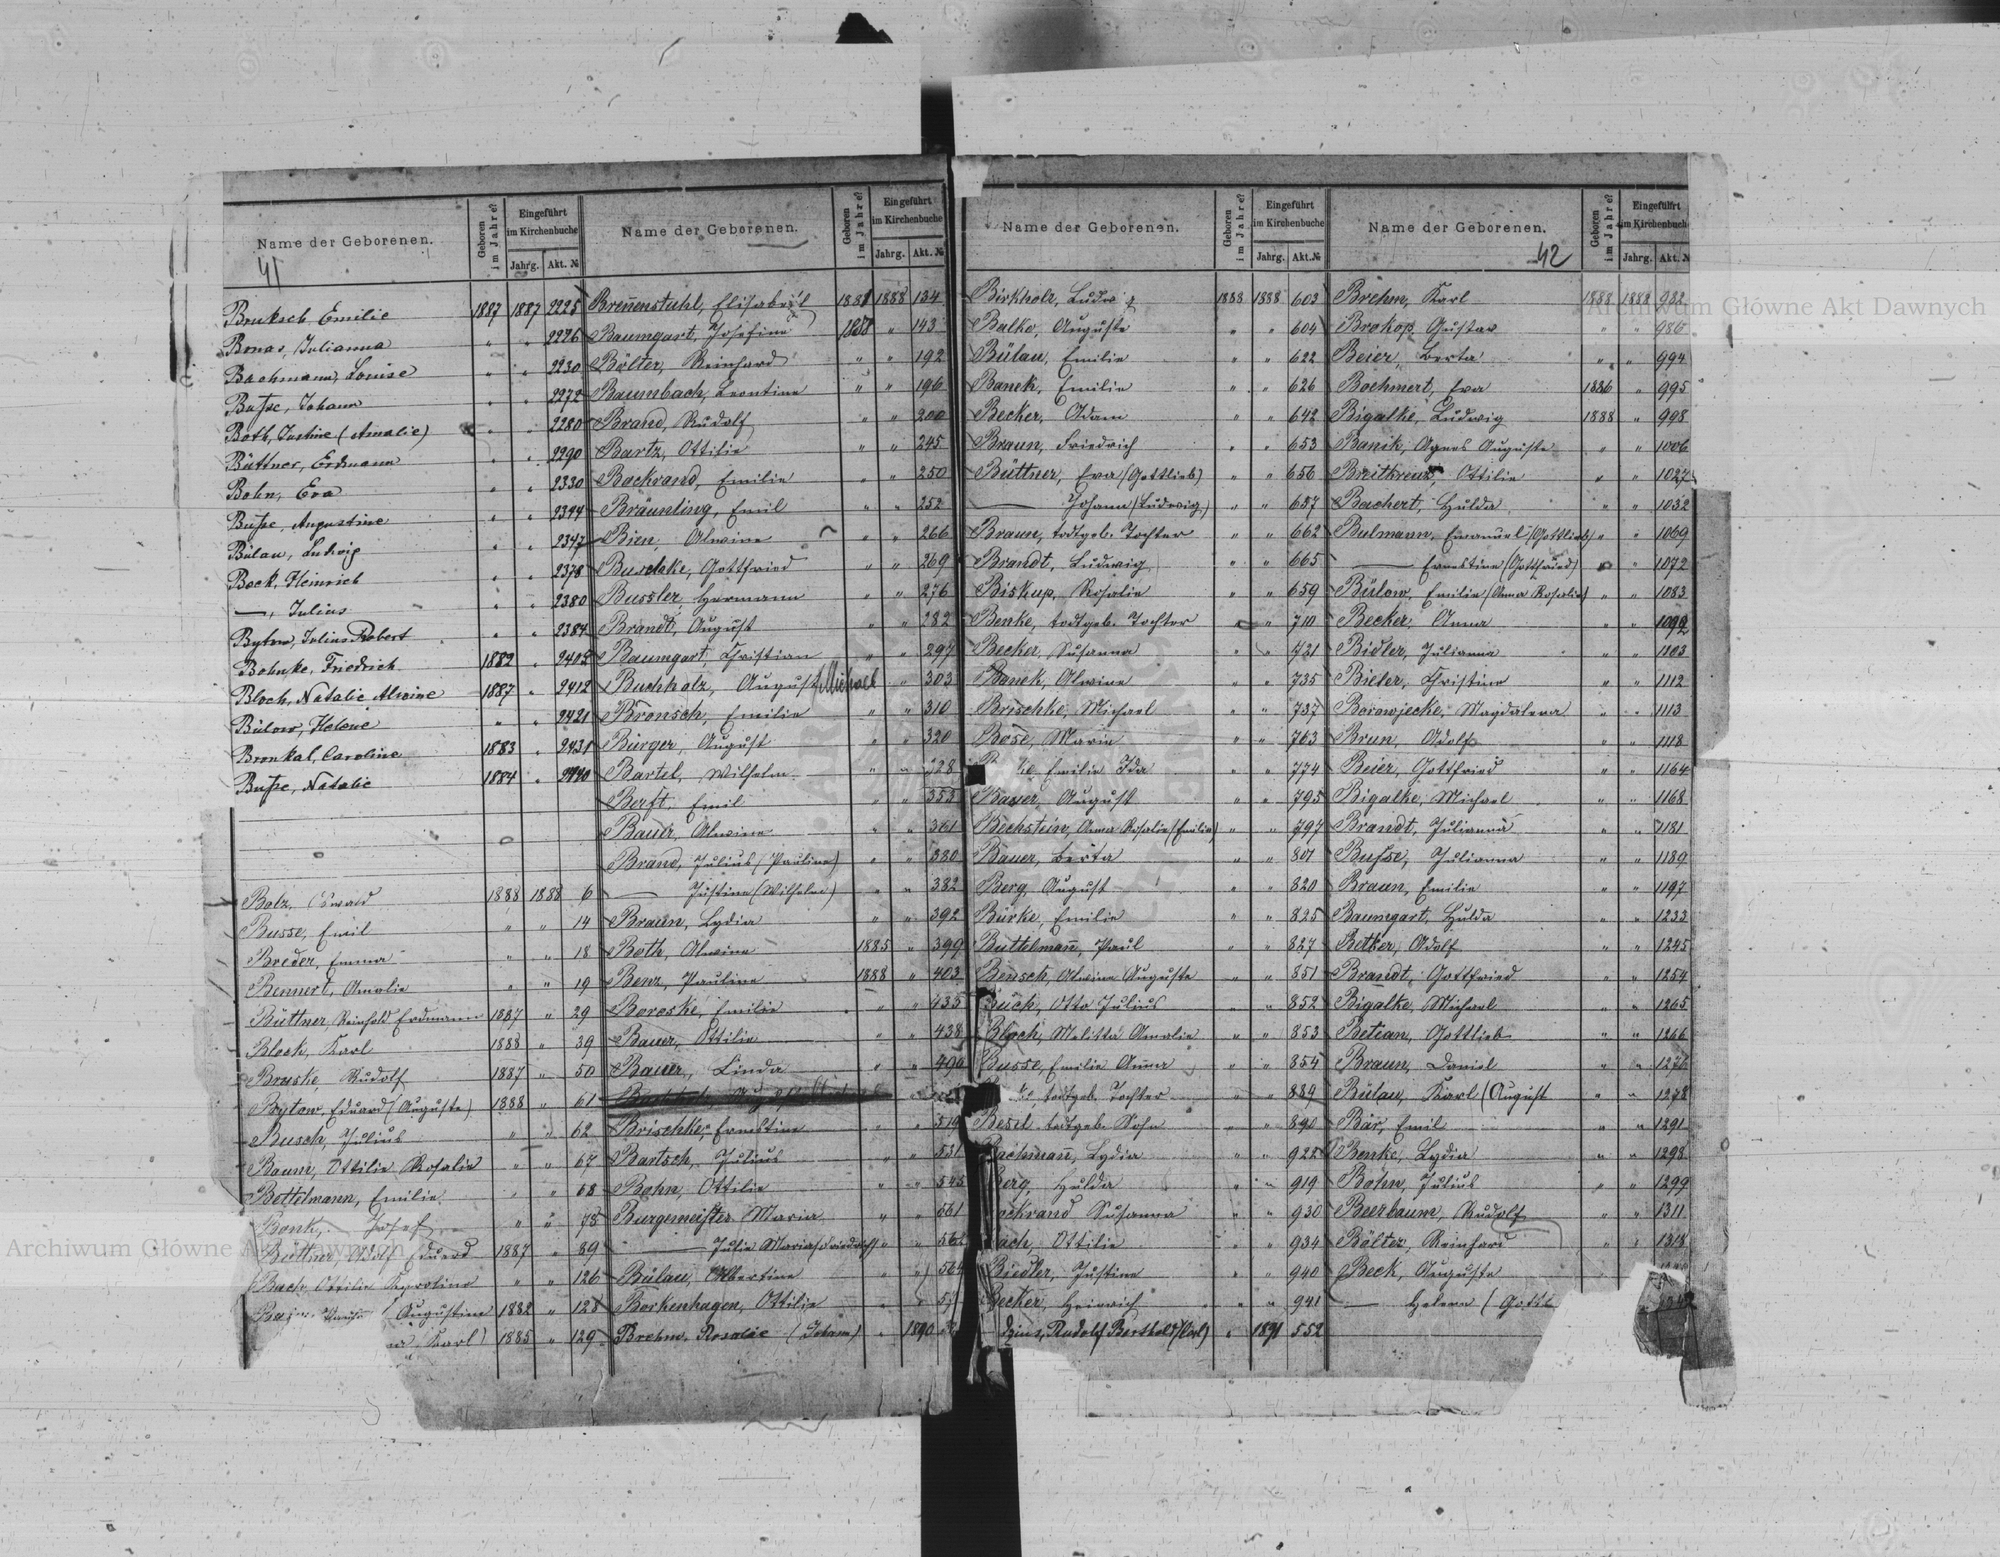 Name der Geborenen. Geboren im Jahre? Eingeführt im Kirchenbuche Jahrg. Akt. №
41
Bruksch, Emilie 1887 1887 2225
Bonas, Julianna " " 2226
Bachmann, Louise " " 2230
Busse, Johann " " 2272
Both, Justine (Amalie) " " 2280
Büttner, Erdmann " " 2290
Bohn, Eva " " 2330
Busse, Augustine " " 2344
Bülau, Ludwig " " 2347
Bock, Heinrich " " 2378
—, Julius " " 2380
Bytow, Julius Robert " " 2384
Bohnke, Friedrich 1882 " 2405
Bloch, Natalie Alwine 1887 " 2412
Bülow, Helene " " 2421
Bronkal, Caroline 1883 " 2431
Busse, Natalie 1884 " 2440
Bolz, Oswald 1888 1888 6
Busse, Emil " " 14
Breder, Emma " " 18
Bennert, Amalie " " 19
Büttner, Reinhold Erdmann 1887 " 29
Block, Karl 1888 " 39
Bruske, Rudolf 1887 " 50
Bytow, Eduard (Auguste) 1888 " 61
Busch, Julius " " 62
Baum, Ottilie Rosalie " " 67
Bettelmann, Emilie " " 68
Bonk, Josef " " 78
Büttner, Adolf Eduard 1887 " 89
Bach, Ottilie Karoline " " 126
Augustine 1882 " 128
Karl) 1885 " 129
Name der Geborenen. Geboren im Jahre? Eingeführt im Kirchenbuche Jahrg. Akt. №
Brennenstuhl, Elisabeth 1888 1888 134
Baumgart, Josefine 1888 " 143
Bölter, Reinhard " " 192
Baumbach, Leontine " " 196
Brand, Rudolf " " 200
Bartz, Ottilie " " 245
Backrand, Emilie " " 250
Bräunling, Emil " " 252
Bien, Alwine " " 266
Buschke, Gottfried " " 269
Bussler, Hermann " " 276
Brandt, August " " 282
Baumgart, Christian " " 297
Buchholz, August Michael " 303
Bronsch, Emilie " " 310
Bürger, August " " 320
Bartel, Wilhelm " " 328
Berft, Emil " " 353
Bauer, Alwine " " 361
Brand, Julius (Pauline) " " 380
— Justine (Wilhelm) " " 382
Braun, Lydia " " 392
Both, Alwine 1885 " 399
Benz, Pauline 1888 " 403
Boreske, Emilie " " 435
Bauer, Ottilie " " 438
Bauer, Linda " " 490
Brischke, Ernestine " " 519
Bartsch, Julius " " 531
Bohn, Ottilie " " 545
Burgemeister Maria " " 561
— Julie Maria (Friedrich) " "
Bülau, Albertine " "
Borkenhagen, Ottilie " "
Brehm, Rosalie (Johann) " 1890
Name der Geborenen. Geboren im Jahre? Eingeführt im Kirchenbuche Jahrg. Akt. №
Birkholz, Ludwig 1888 1888 603
Balke, Auguste " " 604
Bülau, Emilie " " 622
Banek, Emilie " " 626
Becker, Adam " " 642
Braun, Friedrich " " 653
Büttner, Eva (Gottlieb) " " 656
— Johann (Ludwig) " " 657
Braun, todtgeb. Tochter " " 662
Brandt, Ludwig " " 665
Biskup, Rosalie " " 659
Benke, todtgeb. Tochter " " 710
Becker, Susanna " " 721
Banek, Alwine " " 735
Brischke, Michael " " 737
Bose, Marie " " 763
Emilie Ida " " 774
Bayer, August " " 795
Bechstein, Anna Rosalie (Emilie) " " 797
Bauer, Berta " " 801
Berg, August " " 820
Bürke, Emilie " " 825
Buttelmann, Paul " " 827
Bensch, Alwine Auguste " " 851
Buch, Otto Julius " " 852
Bloch, Melitta Amalie " " 853
Busse, Emilie Anna " " 854
todtgeb. Tochter " " 889
Besel todtgeb. Sohn " " 890
Bachmann, Lydia " " 922
Berg, Hulda " " 919
Susanna " " 930
Bach, Ottilie " " 934
Biedler, Justine " " 940
Becker, Heinrich " " 941
Rudolf Berthold (Carl) " 1891 552
Name der Geborenen. Geboren im Jahre? Eingeführt im Kirchenbuche Jahrg. Akt. №
42
Brehm, Karl 1888 1888 982
Brokop, Gustav " " 986
Beier, Berta " " 994
Boehmert, Eva 1886 " 995
Bigalke, Ludwig 1888 " 998
Banik, Agnes Auguste " " 1006
Breitkreuz, Ottilie " " 1027
Bachert, Hulda " " 1032
Bulmann, Emanuel (Gottlieb) " " 1069
— Ernestine (Gottfried) " " 1072
Bülow, Emilie (Anna Rosalie) " " 1083
Becker, Anna " " 1092
Bidler, Julianna " " 1103
Bieler, Christine " " 1112
Borowjecke, Magdalena " " 1113
Brun, Adolf " " 1118
Beier, Gottfried " " 1164
Bigalke, Michael " " 1168
Brandt, Julianna " " 1181
Busse, Julianna " " 1189
Braun, Emilie " " 1197
Baumgart, Hulda " " 1233
Betker, Adolf " " 1245
Brandt, Gottfried " " 1254
Bigalke, Michael " " 1265
Betean, Gottlieb " " 1266
Braun, Daniel " " 1276
Bülau, Karl (August " " 1278
Bär, Emil " " 1291
Benke, Lydia " " 1298
Bohn, Julius " " 1299
Beerbaum, Rudolf " " 1311
Bölter, Reinhard " " 1318
Beck, Auguste
— Helena (Gottl
Archiwum Główne Akt Dawnych
Archiwum Główne Akt Dawnych